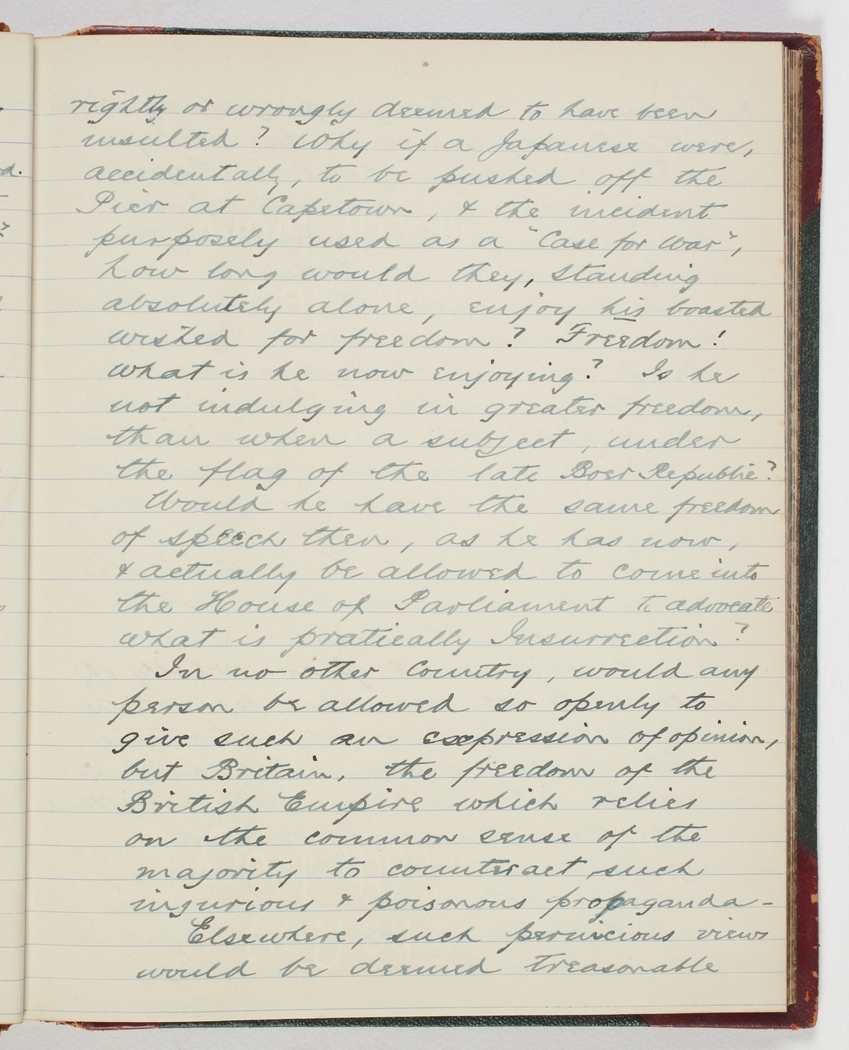 rightly or wrongly deemed to have been
insulted? Why if a Japanese were,
accidentally, to be pushed off the
Pier at Capetown, & the incident
purposely used as a "Case for War",
how long would they, standing
absolutely alone, enjoy his boasted
wished for freedom? Freedom!
what is he now enjoying? Is he
not indulging in greater freedom,
than when a subject, under
the flag of the late Boer Republic?
Would he have the same freedom
of speech then, as he has now,
& actually be allowed to come into
the House of Parliament to advocate
what is pratically Insurrection?
In no other Country, would any
person be allowed so openly to
give such an expression of opinion,
but Britain, the freedom of the
British Empire which relies
on the common sense of the
majority to counteract such
ingurious & poisonous propaganda -
Elsewhere, such pernicious views
would be deemed treasonable
d.
?